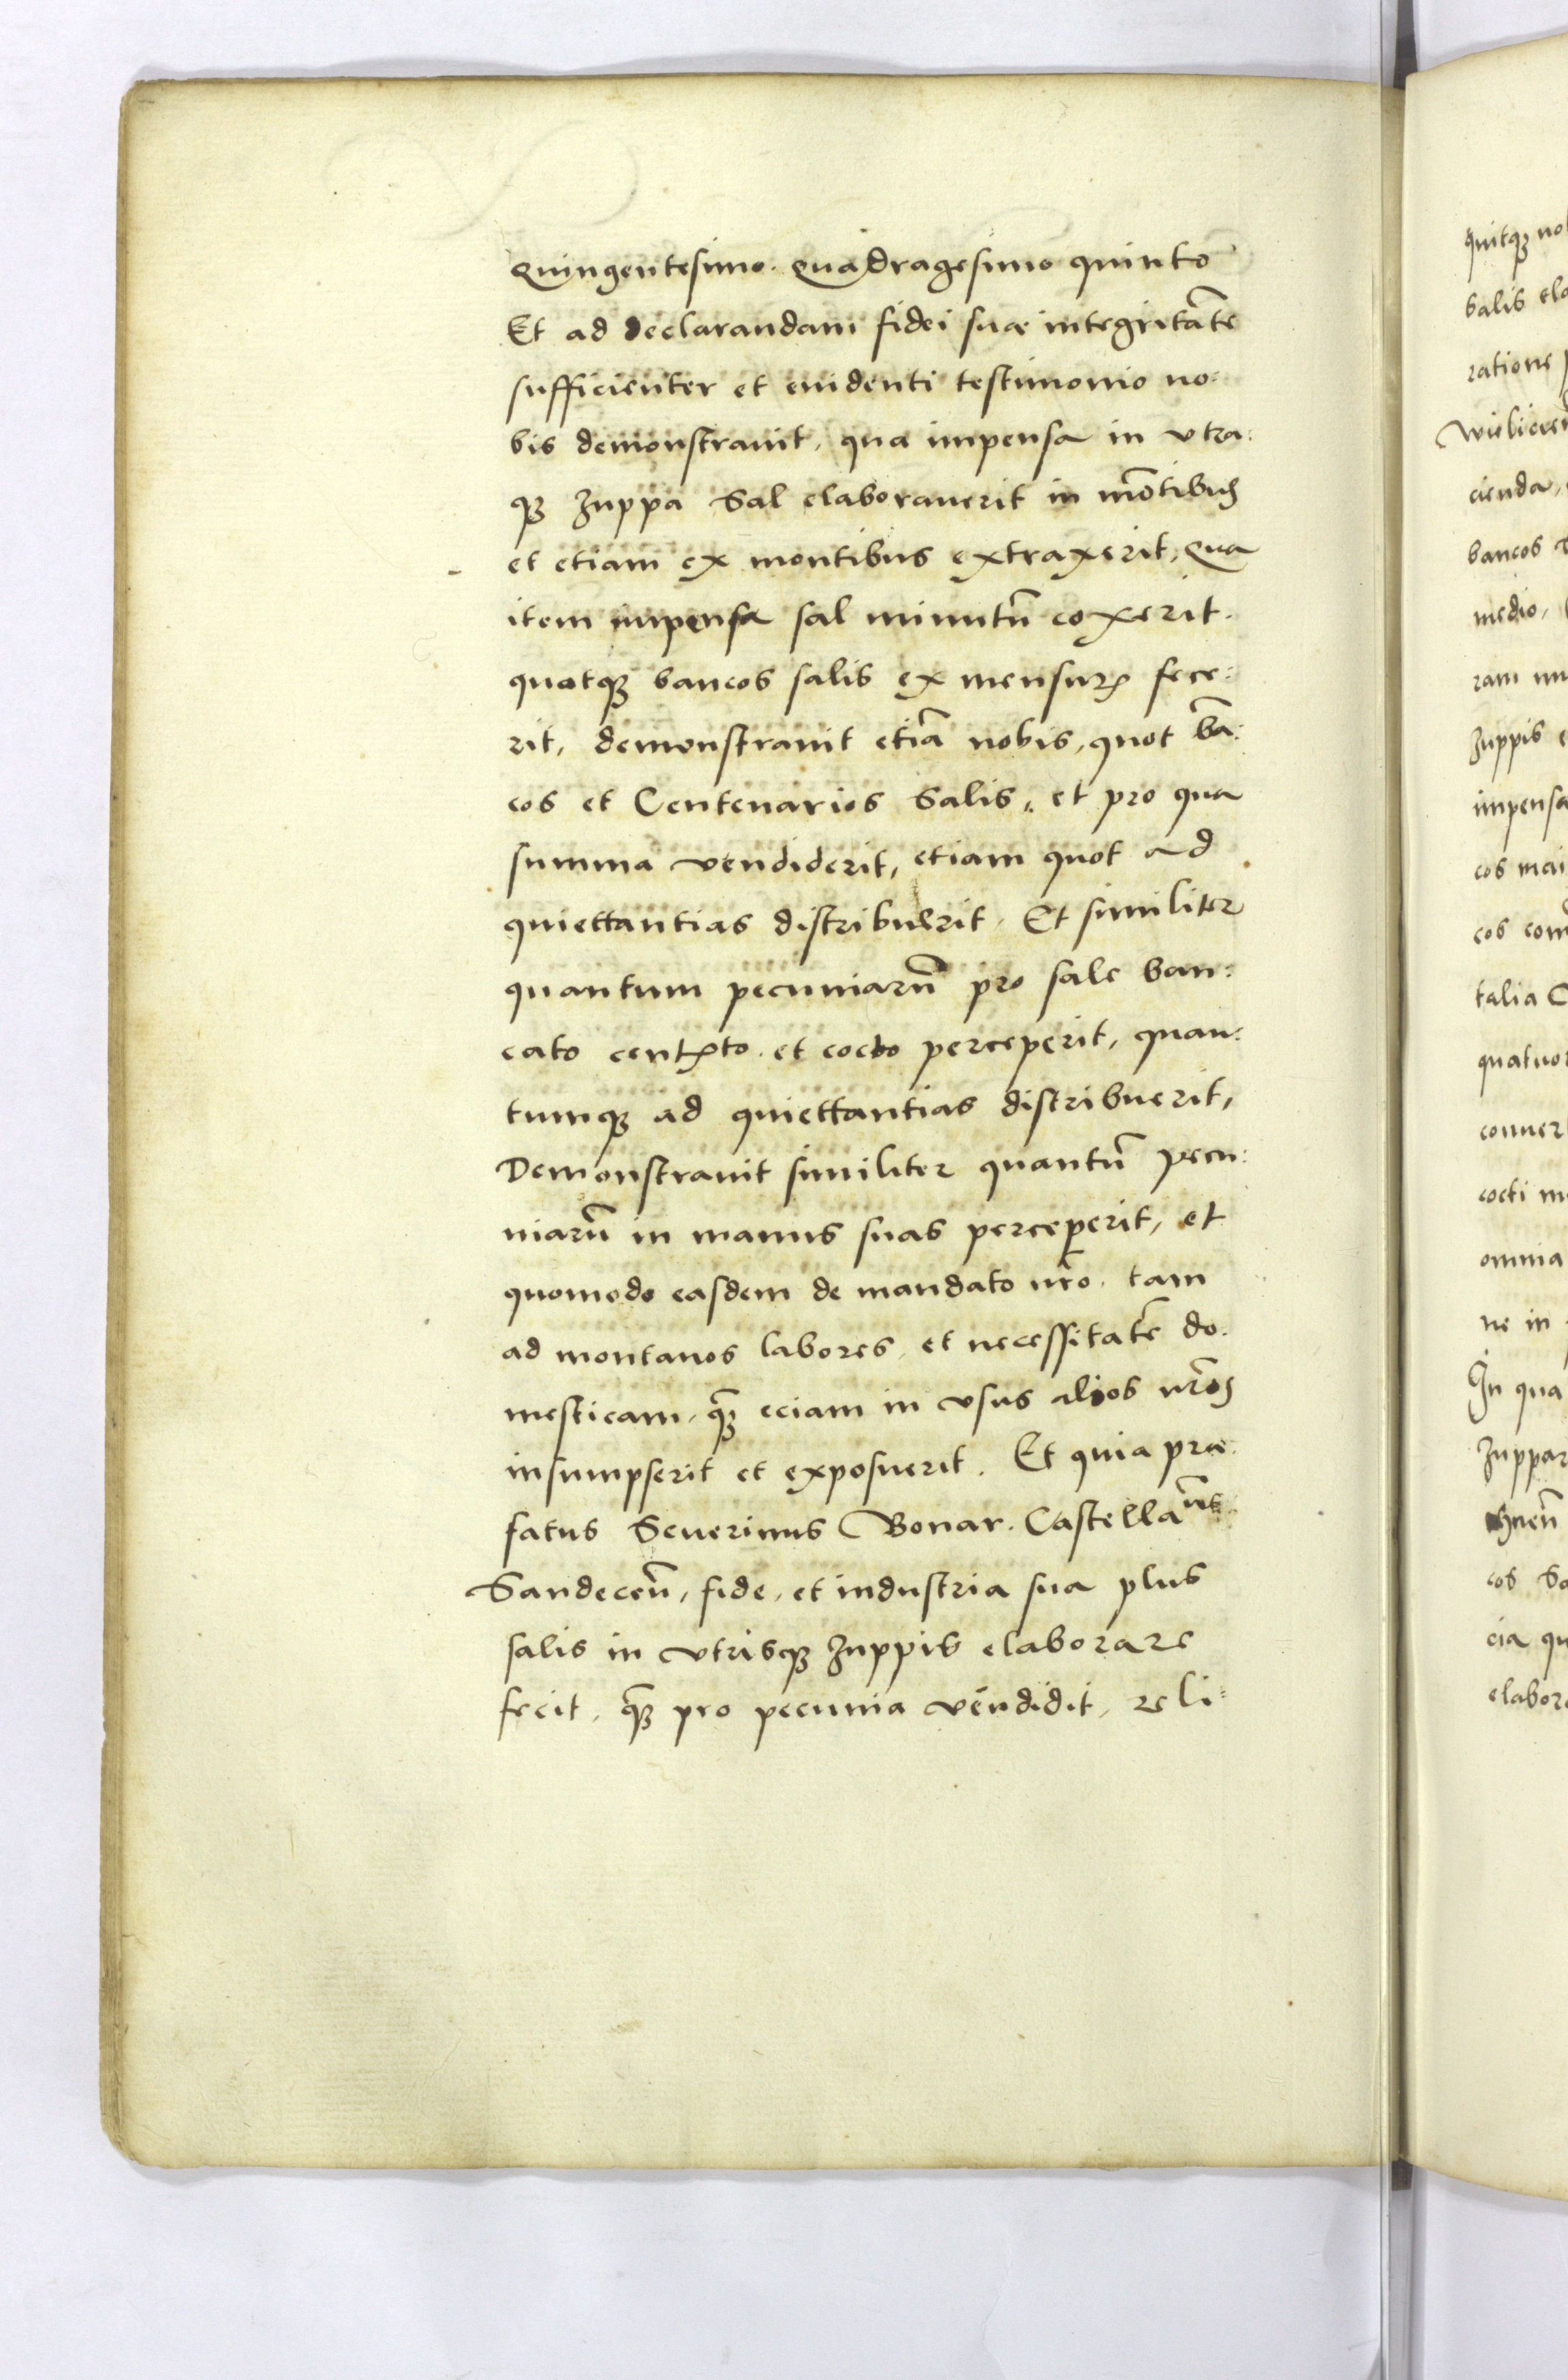 Quingentesimo. Quadragesimo quinto
Et ad declarandam fidei suæ integritatē
sufficienter et euidenti testimonio no:
bis demonstrauit, qua impensa in vtra:
qꝫ Zuppa Sal elaborauerit in mōtibuꝫ
et etiam ex montibus extraxerit, Qua
item impensa sal minutū coxerit.
quotqꝫ bancos salis ex mensurꝭ fece:
rit, demonstrauit etiā nobis, quot bā:
cos et Centenarios Salis, et pro qua
summa vendiderit, etiam quot ad
quiettantias distribuerit. Et similiter
quantum pecuniarū pro sale ban:
cato centꝭto. et cocto perceperit, quan:
tumqꝫ ad quiettantias distribuerit,
Demonstrauit similiter quantū pecu:
niarū in manus suas perceperit, et
quomodo easdem de mandato nr̄o. tam
ad montanos labores, et necessitatē do.
mesticam, qꝫ̄ eciam in vsus alios nr̄oꝫ
insumpserit et exposuerit. Et quia præ:
fatus Seuerinus Bonar. Castellanꝰ
Sandeceñ, fide, et industria sua plus
salis in vtrisqꝫ Zuppis elaborare
fecit, qꝫ̄ pro pecunia vendidit, reli:
quitqꝫ
Salis
ratione
cienda,
bancos
medio,
ram
Zuppis
impensa
cos
cos
talia
cocti
omnia
ne in
In qua
cos
cia